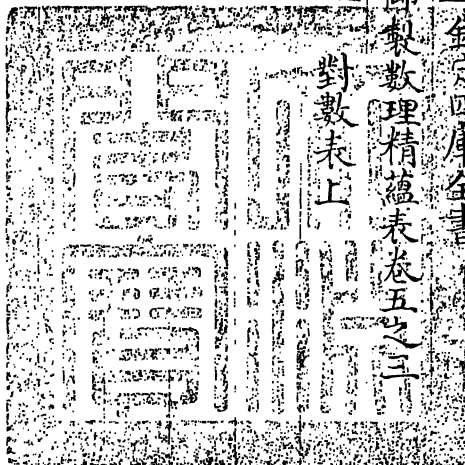 欽定四庫全書
御製数理精蘊表卷五之三
對數表上